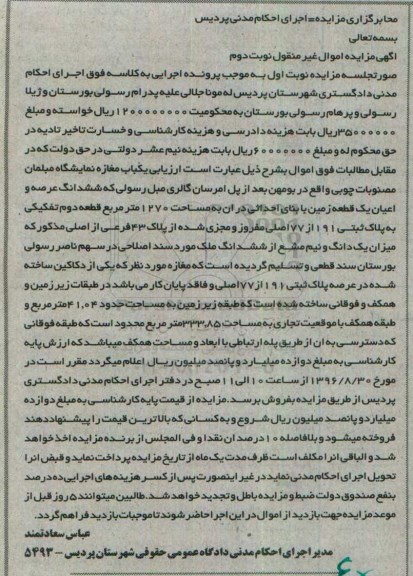 محل برگزاری مزایده = اجرای احکام مدنی پردیس
بسمه تعالی
آگهی مزایده اموال غیر منقول نوبت دوم
صورتجلسه مزایده نوبت اول به موجب پرونده اجرایی به کلاسه فوق اجرای احکام
مدنی دادگستری شهرستان پردیس له مونا جلالی علیه پدرام رسولی بورستان و ژیلا
رسولی و پرهام رسولی بورستان به محکومیت ۱۲۰۰۰۰۰۰۰۰۰ ریال خواسته و مبلغ
۳۵۰۰۰۰۰۰ ریال بابت هزینه دادرسی و هزینه کارشناسی و خسارت تاخیر تادیه در
حق محکوم له و مبلغ ۶۰۰۰۰۰۰۰۰ ریال بابت هزینه نیم عشر دولتی در حق دولت که در
مقابل مطالبات فوق اموال بشرح ذیل عبارت است ارزیابی یکباب مغازه نمایشگاه مبلمان
مصنوبات چوبی واقع در بومهن بعد از پل امرسان گالری مبل رسولی که ششدانگ عرصه و
اعیان یک قطعه زمین با بنای احداثی در آن به مساحت ۱۲۷۰ متر مربع قطعه دوم تفکیکی
به پلاک ثبتی ۱۹۱ از ۷۷ اصلی مفروز و مجزی شده از پلاک ۴۳ فرعی از اصلی مذکور که
میزان یک دانگ و نیم مشع از ششدانگ ملک مورد سند اصلاحی در سهم ناصر رسولی
بورستان سند قطعی و تسلیم گردیده است که مغازه مورد نظر که یکی از دکاکین ساخته
شده در عرصه پلاک ثبتی ۱۹۱ از ۷۷ اصلی و فاقد پایان کار می باشد در طبقات زیر زمین و
همکف و فوقانی ساخته شده است که طبقه زیر زمین به مساحت حدود ۴۱،۰۴ متر مربع و
طبقه همکف با موقعیت تجاری به مساحت ۳۳۳،۸۵ متر مربع محدود است که طبقه فوقانی
که دسترسی به آن از طریق پله ارتباطی با ابعاد و مساحت همکف میباشد که ارزش پایه
کارشناسی به مبلغ دوازده میلیارد و پانصد میلیون ریال اعلام میگردد مقرر است در
مورخ ۱۳۹۶/۸/۳۰ از ساعت ۱۰ الی ۱۱ صبح در دفتر اجرای احکام مدنی دادگستری
پردیس از طریق مزایده بفروش برسد. مزایده از قیمت پایه کارشناسی به مبلغ دوازده
میلیارد و پانصد میلیون ریال شروع و به کسانی که بالاترین قیمت را پیشنهاد دهند
فروخته میشود و بلافاصله ۱۰ درصد آن نقدا و فی المجلس از برنده مزایده اخذ خواهد
شد و الباقی انرا مکلف است ظرف مدت یک ماه از تاریخ مزایده پرداخت نماید و قبض انرا
تحویل اجرای احکام مدنی نماید در غیر اینصورت پس از کسر هزینه های اجرایی ده درصد
بنفع صندوق دولت ضبط و مزایده باطل و تجدید خواهد شد. طالبین میتوانند ۵ روز قبل از
موعد مزایده جهت بازدید از اموال در این اجرا حاضر شوند تا موجبات بازدید فراهم گردد.
عباس سعادتمند
مدیر اجرای احکام مدنی دادگاه عمومی حقوقی شهرستان پردیس - ۵۴۹۳